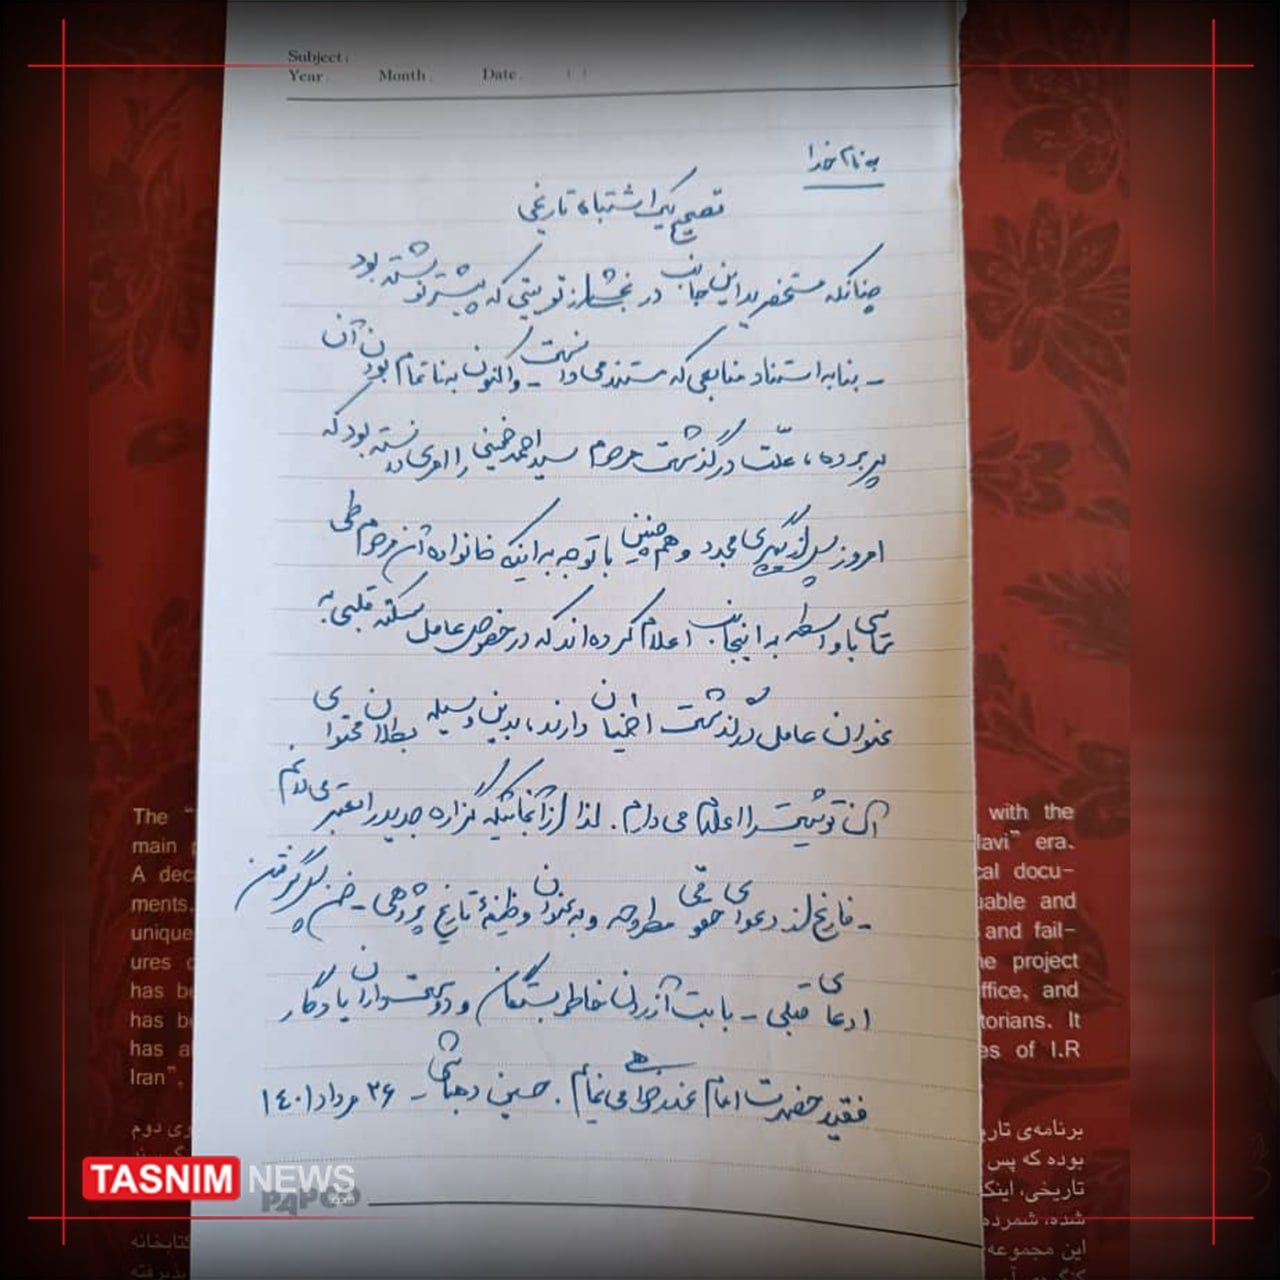 Subject:
Year. Month. Date. ( )
به نام خدا
تصحیح یک اشتباه تاریخی
چنانکه مستحضرید این جانب در بخشی از توییتی که پیشتر نوشته بود
- بنا به استناد منابعی که مستند می‌دانست - و اکنون به ناتمام بودن آن
پی برده، علّت درگذشت مرحوم سید احمد خمینی را امری دانسته بود که
امروز پس از پیگیری مجدد و هم چنین با توجه به اینکه خانواده آن مرحوم طی
تماسی با واسطه به اینجانب اعلام کرده‌اند که در خصوص عامل سکته قلبی به
عنوان عامل درگذشت اطمینان دارند، بدین وسیله بطلان محتوای
آن توئیت را اعلام می‌دارم. لذا از آنجائیکه گزاره جدید را معتبر می‌دانم
- فارغ از دعوای حقوقی مطروحه و به عنوان وظیفهٔ تاریخ پژوهی - ضمن پس گرفتن
ادعای قبلی - بابت آزردن خاطر بستگان و دوستداران یادگار
فقید حضرت امام عذرخواهی می‌نمایم. حسین دهباشی - ۲۶ مرداد ۱۴۰۱
PAPCO
TASNIM NEWS
.com
The "
main
A dec
ments.
unique
ures
has be
has be
has a
Iran".
with the
lavi" era.
cal docu-
uable and
and fail-
he project
ffice, and
torians. It
es of I.R
وی دوم
کتابخانه
پذیرفته
برنامه‌ی تار
بوده که پس
تاریخی، اینک
شده، شمرده
این مجموعه